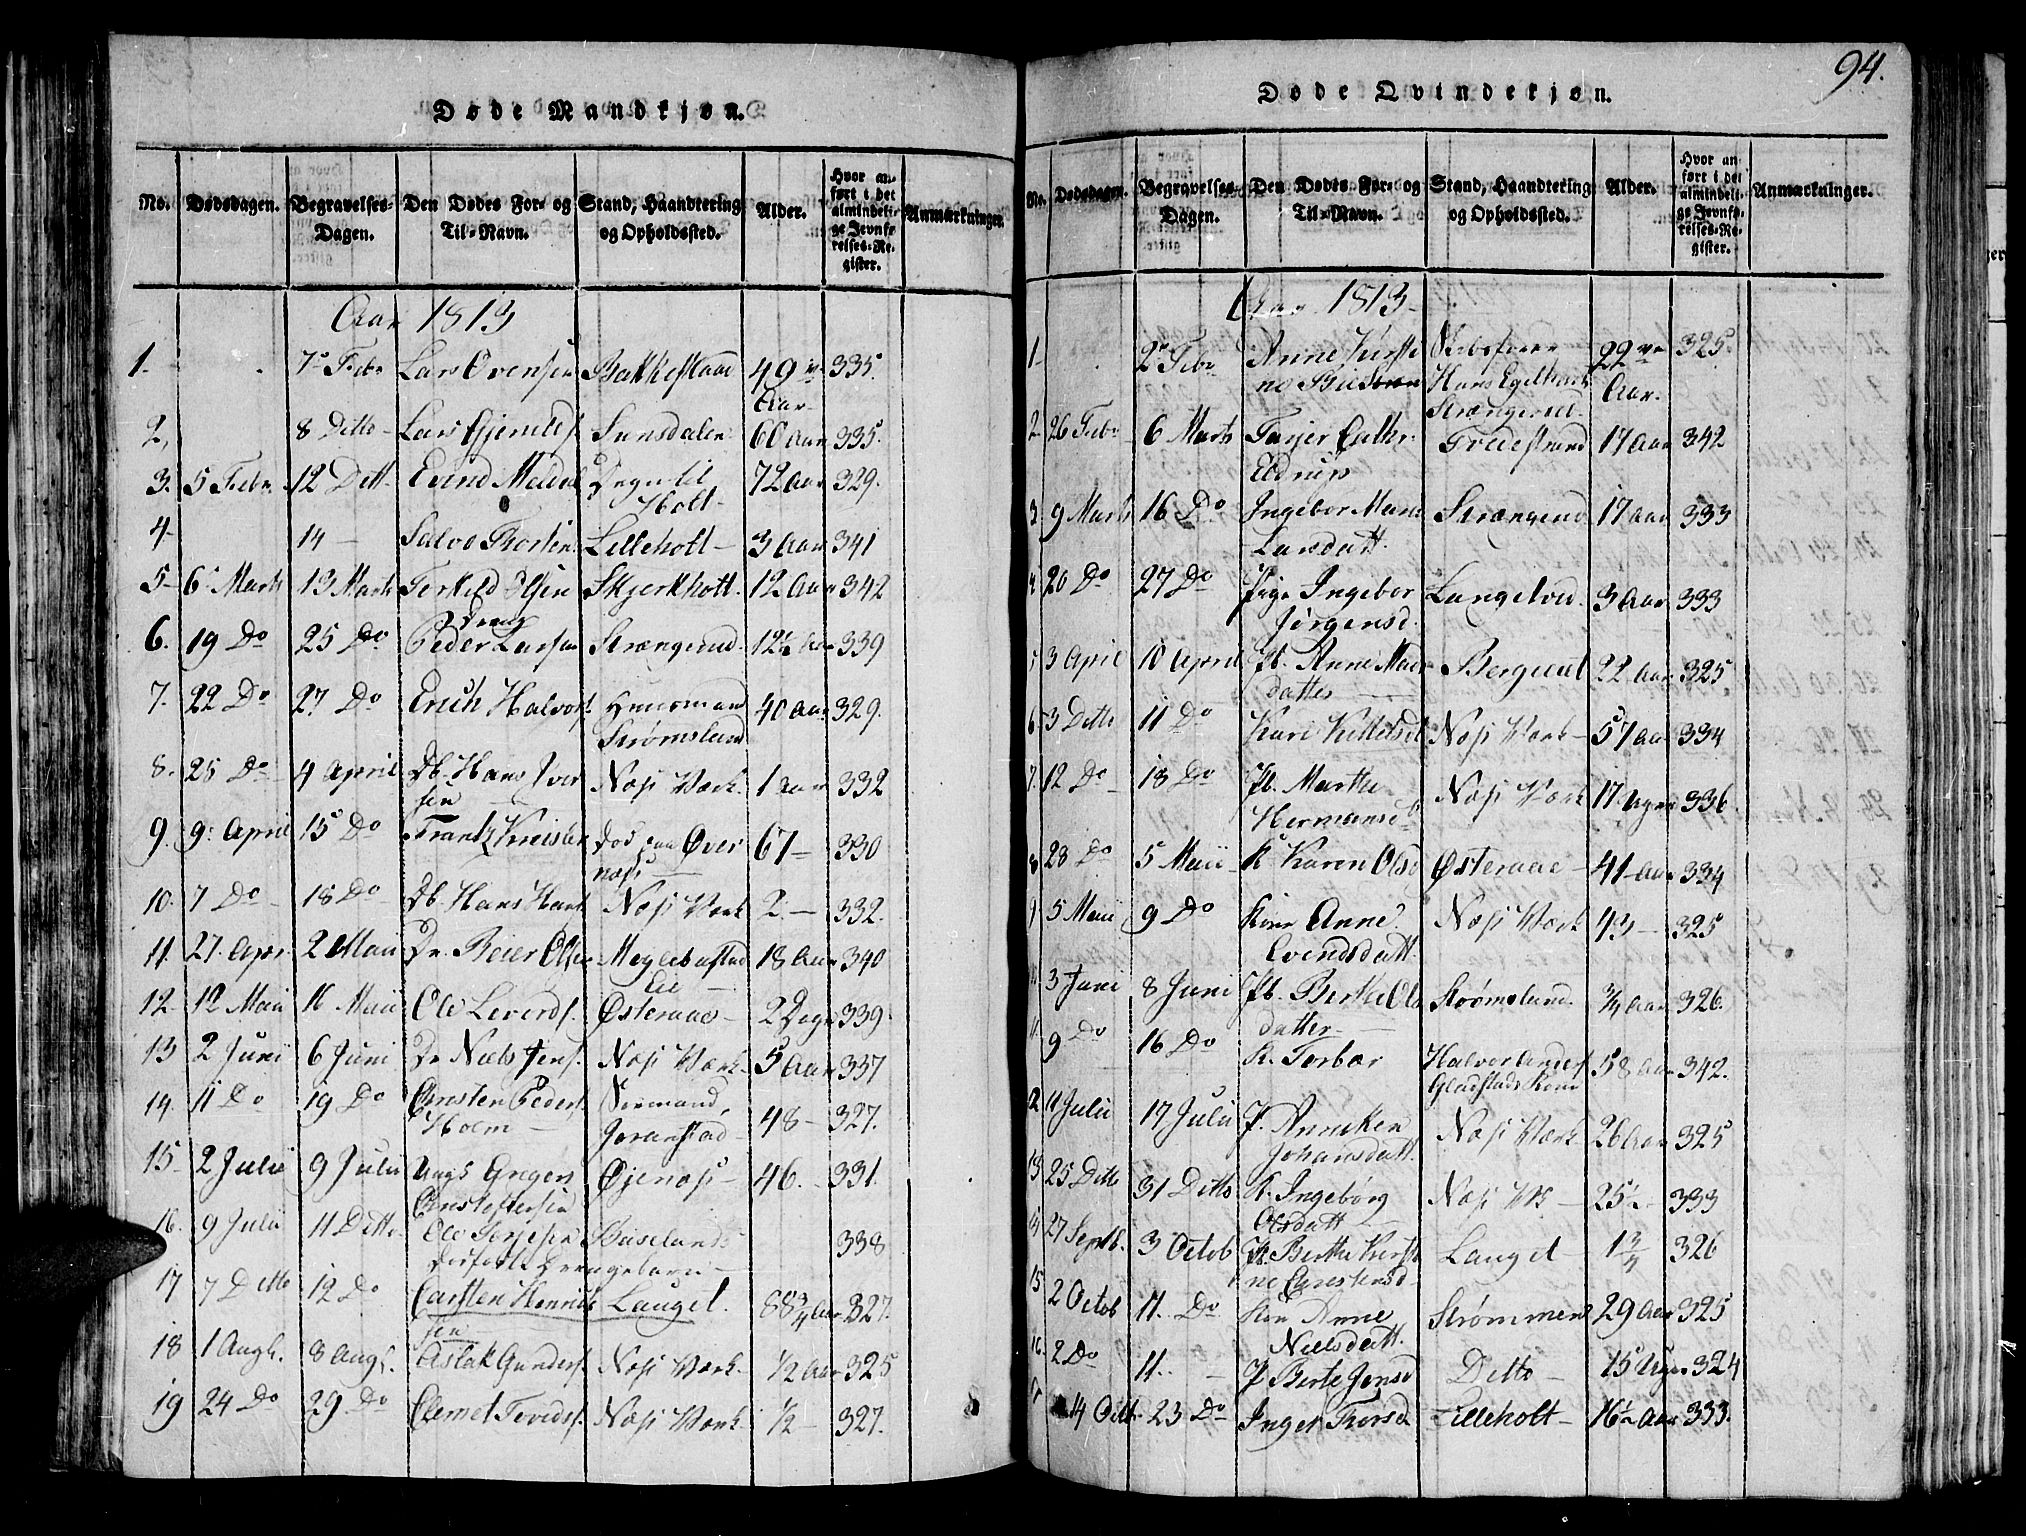 94.
Døde Mandkjøn.
No. Dødsdagen. Begravelses-Dagen. Den Dødes For- og Til-Navn. Stand, Haandtering og Opholdssted. Alder. Hvor anført i det almindelige Jevnførelses-Register. Anmærkninger.
Aar 1813
1. 7 Febr Lars Evensen 49 335.
Aar
2, 8 Ditto Lars 60 Aar 335.
3. 5 Febr 12 Ditt Evind 72 Aar 329.
Holt
4 14 Salve Lilleholt 3 Aar 341
5 6 Marts 13 Marts Terkild Olsen Skjerkholt 12 Aar 342
Dreng
6. 19 Do 25 Do Peder Larsen Strængerud 12½ Aar 339
7. 22 Do 27 Do Erich Halvors Huusmand 40 Aar 329.
Strømslund
8. 25 Do 4 April Db. Hans Iver Næss Værk 1 Aar 332
sen
9. 9 April 15 Do Frantz Død paa Øver 67 330
næss
10. 7 Do 18 Do Db Hans Næss Værk 2 332.
11. 27 Apr. 2 Maii Dr. Reier Olsen 18 Aar 340
Eie
12. 12 Maii 16 Maii Ole Østeraae 339.
13 2 Junii 6 Juni Dr Niels Jens. Næss Værk 5 Aar 337
14. 11 Do 19 Do Christen Peders 48 327.
Holm
15 2 Julii 9 Julii Gregers Øjenæss 46. 331.
16. 9 Julii 11 Ditto Ole Terjesen 338
Drengebarn
17 7 Ditto 12 Do Carsten Henrik Lauget 88¾ Aar 327.
sen
18 1 Augt. 8 Augt. Aslak Gunders. Næss Værk ½ Aar 325
19 24 Do 29 Do Clemet Næss Værk ½ 327.
Døde Qvindekjøn.
No. Dødsdagen. Begravelses-Dagen. Den Dødes For- og Til-Navn. Stand, Haandtering og Opholdssted. Alder. Hvor anført i det almindelige Jevnførelses-Register. Anmærkninger.
Aar 1813
1 2 Febr Anne Kirsti 22 325
ne Hans Aar.
Strængerud
2 26 Febr 6 Marts Tarjer Cathr. Tvedestrand 17 Aar 342
Eldrup
3 9 Marts 16 Do Ingebor Marie Strængerud 17 Aar 333
Larsdatt.
4 20 Do 27 Do Pige Ingebor Langelved 3 Aar 333
Jørgensd.
5 3 April 10 April Pb. Anne 22 Aar 325
datter
6 3 Ditto 11 Do Kari Kittelsd Næss Værk 57 Aar 334
7. 12 Do 18 Do Pb. Marthe Næss Værk 17 Uger 336
Hermansd
8 28 Do 5 Maii K Karen Olsd Østeraae 41 Aar 334
5 Maii 9 Do Kone Anne Næss Værk 43 325
Evendsdatt.
3 Juni 8 Juni Pb. Berthe Ols Strømslund ¾ Aar 326.
datter
9 Do 16 Do K. Torbor Halvor Anders 58 Aar 342.
Gladstads Kone
12 11 Julii 17 Julii P. Anneken Næss Værk 26 Aar 325
Johansdatt.
13 25 Ditto 31 Ditto K. Ingebørg Næss Vk 25½ 333
Olsdatt
27 Septb. 3 Octob Pb. Berthe Kirsti Lauget 1¾ 326
ne Christensd
15 2 Octob 11. Do Kon Anne Strømmen 29 Aar 325
Nielsdatt.
16. 2 Do 11. P Berte Jensd Ditto 15 Uger 324
4 Octb 23 Do Inger Thorsd Lilleholt 16½ Aar 333.